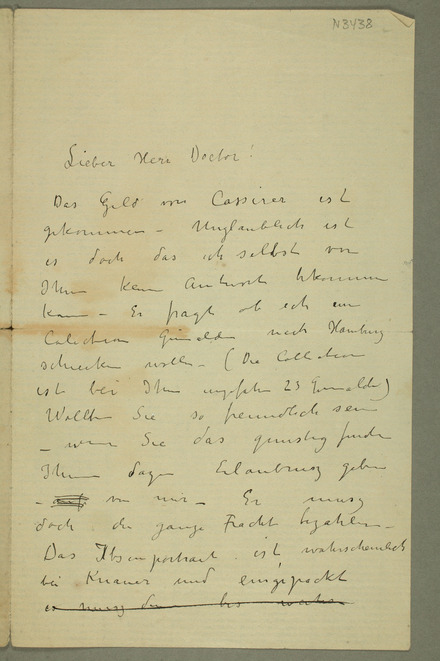 N3438
Lieber Herr Doctor!
Das Geld von Cassirer ist
gekommen – Unglaublich ist
es doch das ich selbst von
Ihm kein Antwort bekommen
kann – Er fragt ob ich eine
Colection Gemelde nach Hamburg
schicken wolle – (Die Collection
ist bei Ihm ungefehr 25 Gemelde)
Wollten Sie so freundlich sein
– wenn Sie das gunstig finden
Ihm dazu Erlaubnusz geben
– von mir – Er musz
doch die ganze Fracht bezahlen –
Das Ibsenportrait ist wahrscheinlich
bei Knauer und eingepackt
es musz